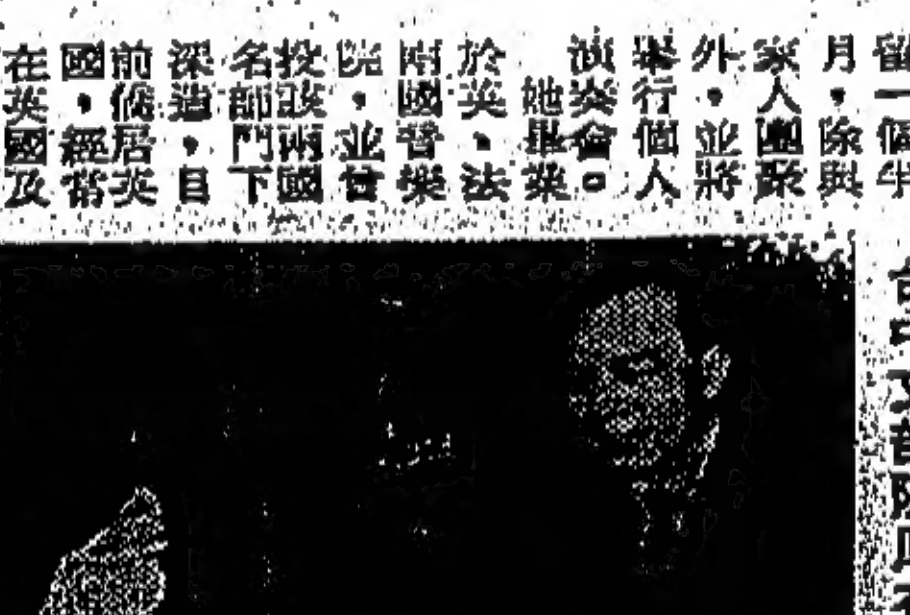 留一個半
月，除與
家人團聚
外，並將
舉行個人
演奏會。
她畢業
於英、法
兩國音樂
院，並曾
投該兩國
名師門下
深造，目
前僑居英
國，經常
在英國及